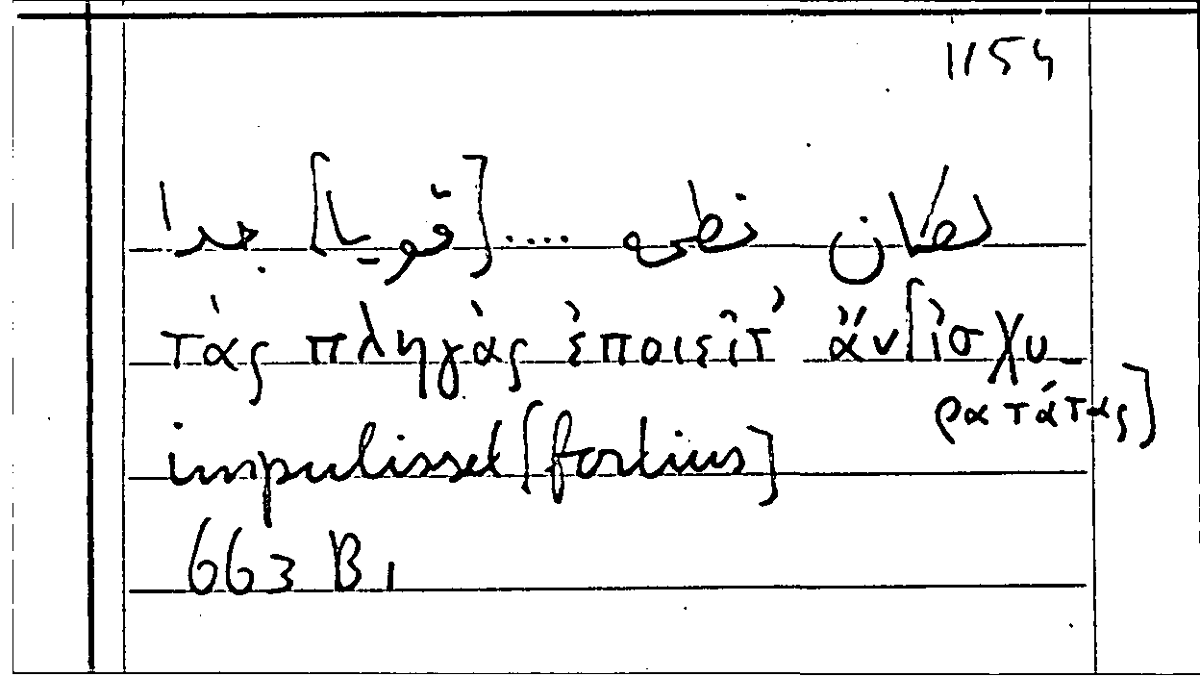 1154
لكان نطحه ....[قويا] جدا
τὰς πληγὰς ἐποιεῖτ᾽ ἂν [ἰσχυ-
ρατάτας]
impulisset [fortius]
663 B 1